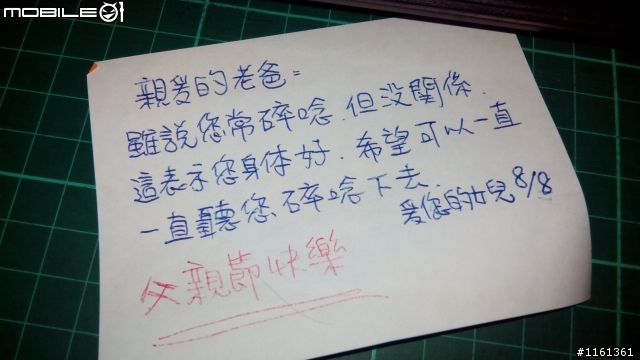 MOBILE01
親爱的老爸=
雖說您常碎唸.但没關係.
這表示您身体好.希望可以一直
一直聽您碎唸下去.
爱您的女兒 8/8
父親節快樂
#1161361